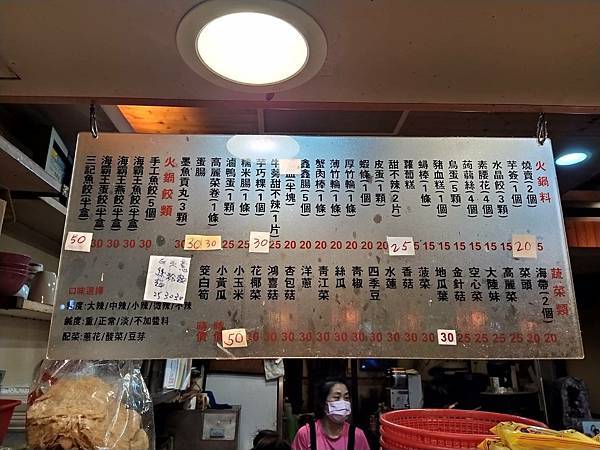 火鍋料
燒賣(2個)
芋簽(1個)
水晶餃(3顆)
素腰花(4個)
蒟蒻絲(4個)
鳥蛋(5顆)
豬血糕(1個)
蟳棒(1條)
蘿蔔糕
甜不辣(2片)
皮蛋(1顆)
蝦條(1個)
厚竹輪(1條)
薄竹輪(1條)
蟹肉棒(1條)
鑫鑫腸(5個)
牛蒡甜不辣(1片)
芋巧粿(1個)
糯米腸(1條)
滷鴨蛋(1顆)
高麗菜卷(1條)
蛋腸
墨魚貢丸(3顆)
火鍋餃類
手工魚餃(5個)
海霸王魚餃(半盒)
海霸王燕餃(半盒)
海霸王蛋餃(半盒)
三記魚餃(半盒)
50 30 30 30 30 30 30 25 25 30 25 20 20 20 20 20 20 20 25 15 15 15 15 15 20 5
蔬菜類
海帶(2個)
菜頭
高麗菜
大陸妹
空心菜
金針菇
地瓜葉
菠菜
香菇
水蓮
四季豆
青椒
絲瓜
青江菜
洋蔥
杏包菇
鴻喜菇
花椰菜
小玉米
小黃瓜
筊白筍
時價
50 30 20 20
口味選擇
辣度:大辣/中辣/小辣/微辣/不辣
鹹度:重/正常/淡/不加醬料
配菜:蔥花/酸菜/豆芽